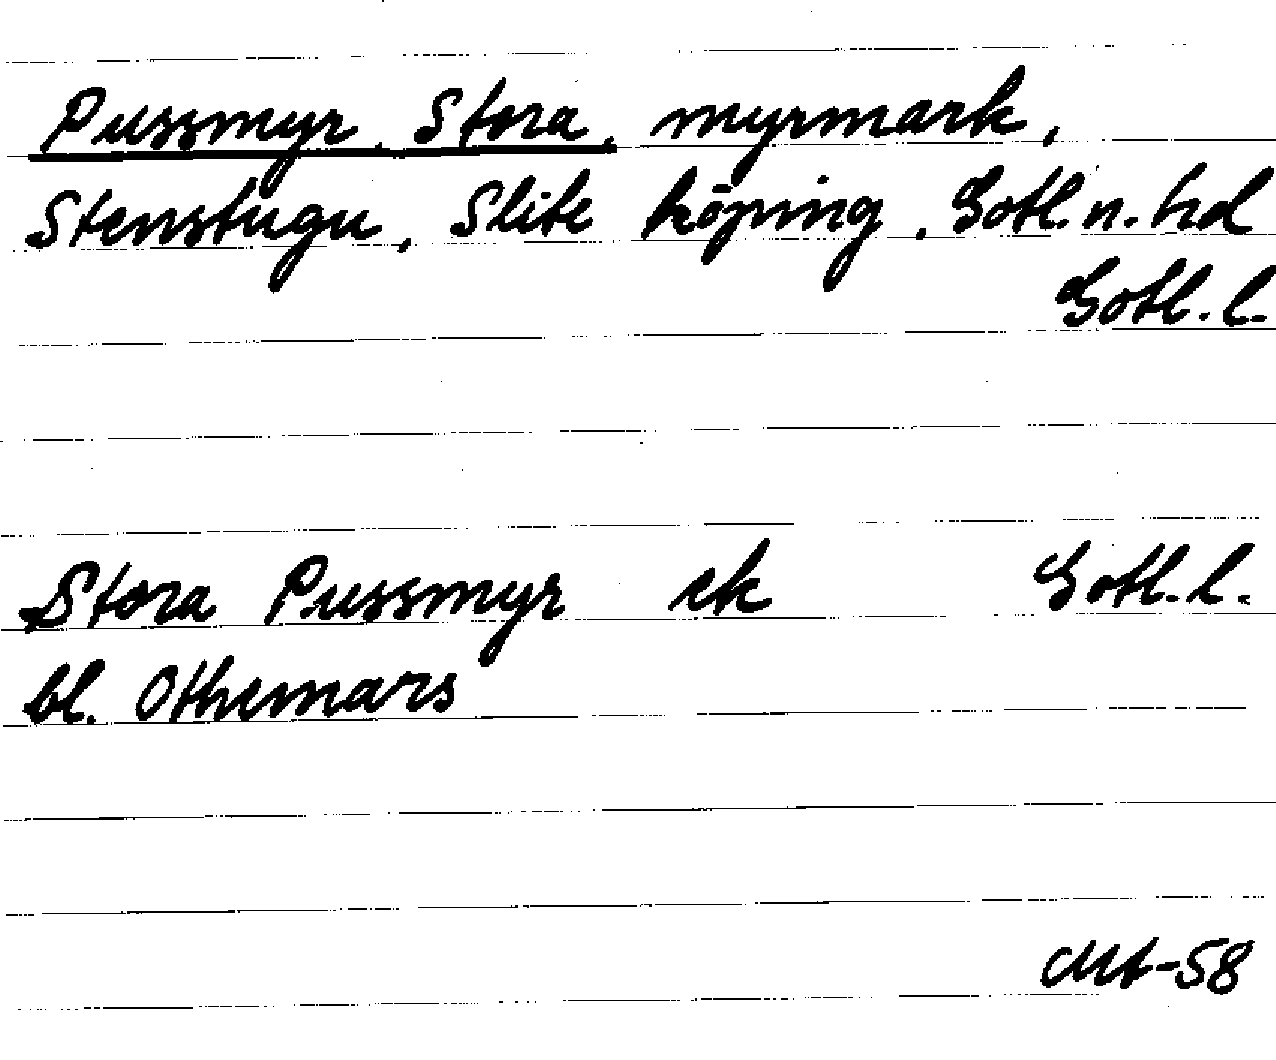 Pussmyr, Stora, myrmark,
Stenstugu, Slite köping, Gotl. n. hd
Gotl. l.
Stora Pussmyr ek Gotl. l.
bl. Othemars